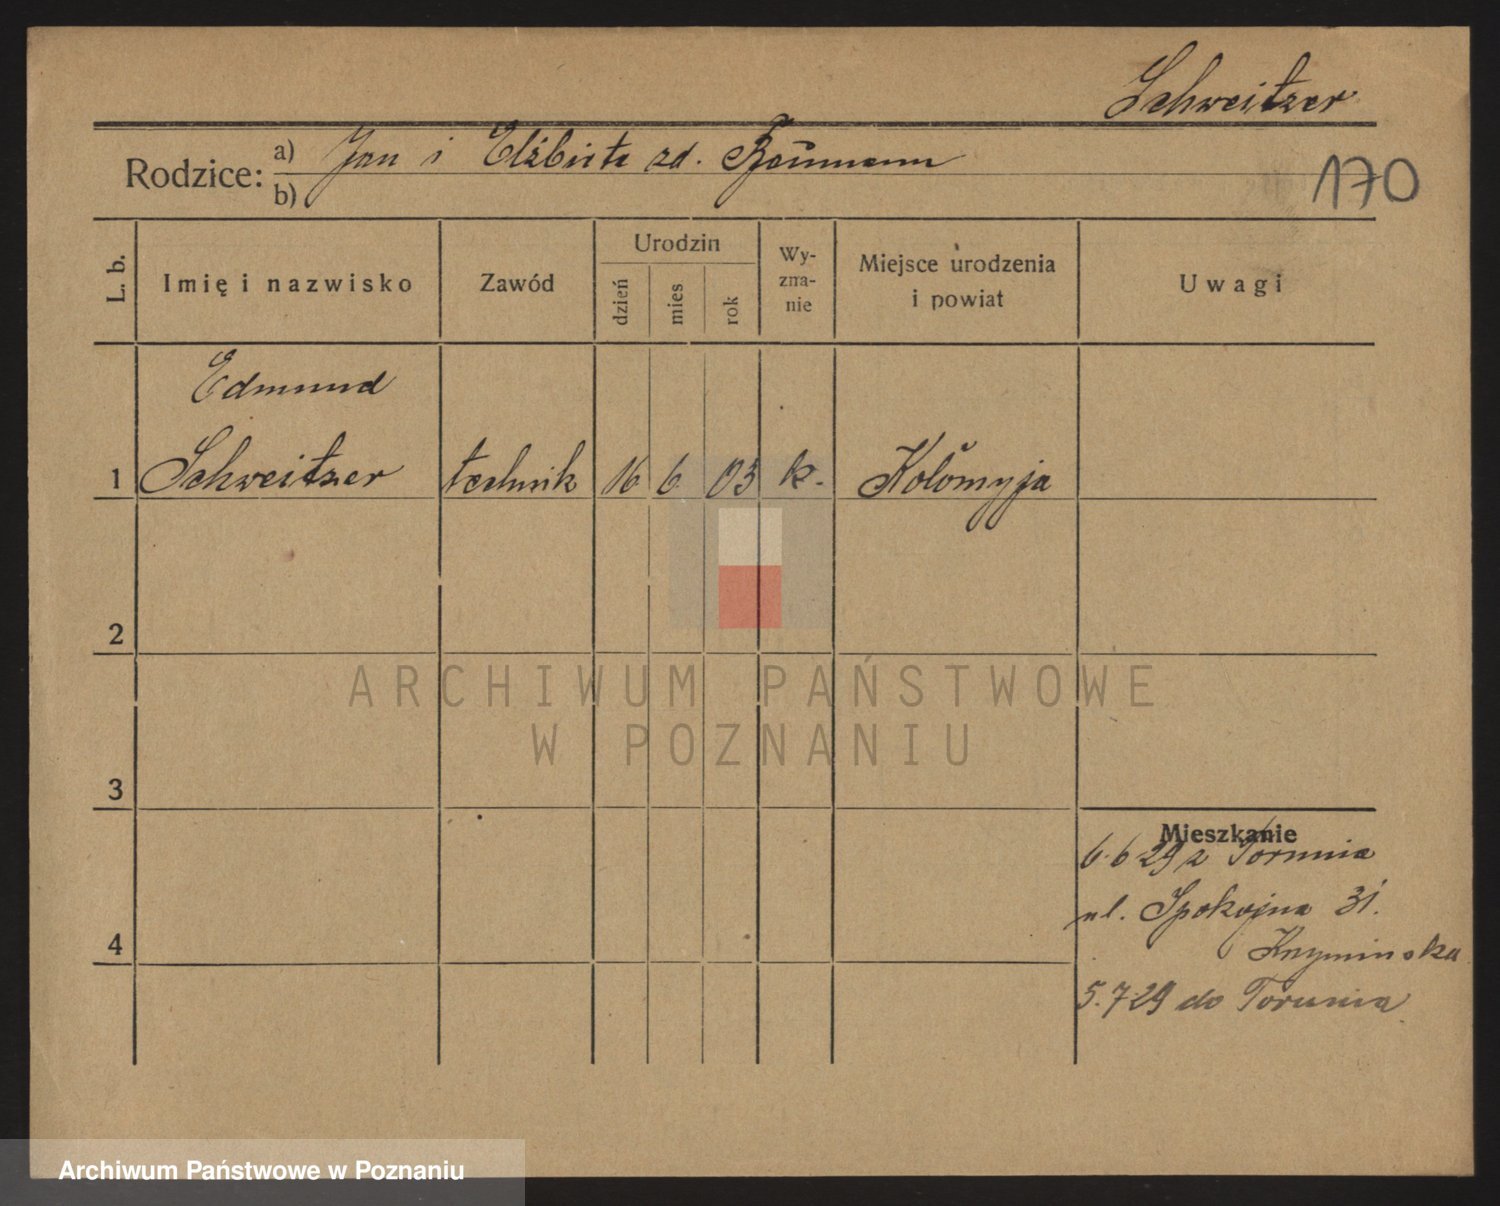 Schweitzer
Rodzice: a) Jan i Elżbieta zd. Baumann
b)
170
L. b. Imię i nazwisko Zawód Urodzin dzień mies rok Wy-zna-nie Miejsce urodzenia i powiat Uwagi
Edmund
1 Schweitzer technik 16 6 03 k. Kołomyja
2
3
4
Mieszkanie
6.6 29 z Torunia
ul. Spokojna 31.
5.7.29 do Torunia
ARCHIWUM PAŃSTWOWE
W POZNANIU
Archiwum Państwowe w Poznaniu